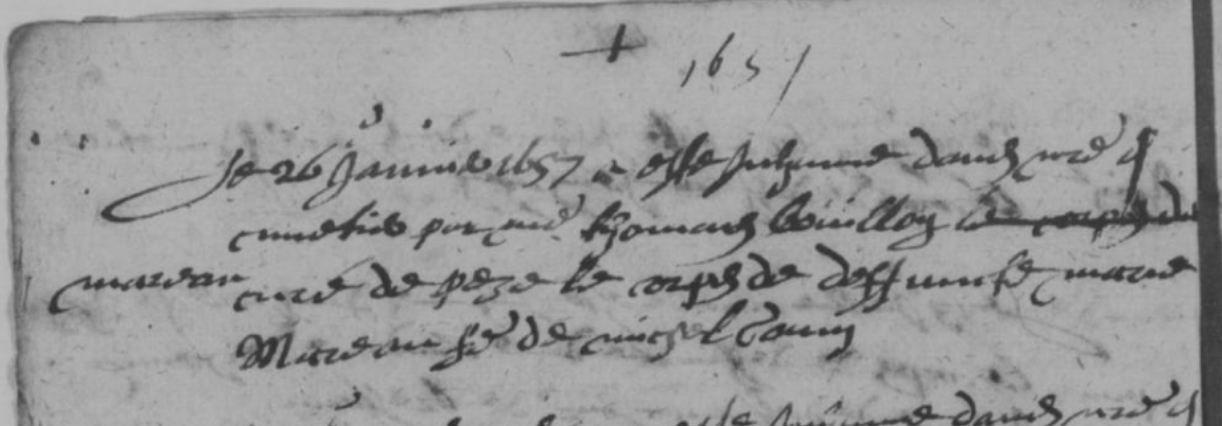 1657
Le 26 Janvier 1657 a este Inhumé dans nre
cimetiere par me Thomas le corps de
mareau
curé de peze le corps de deffuncte marie
Mareau fe de michel
este Inhumé dans nre